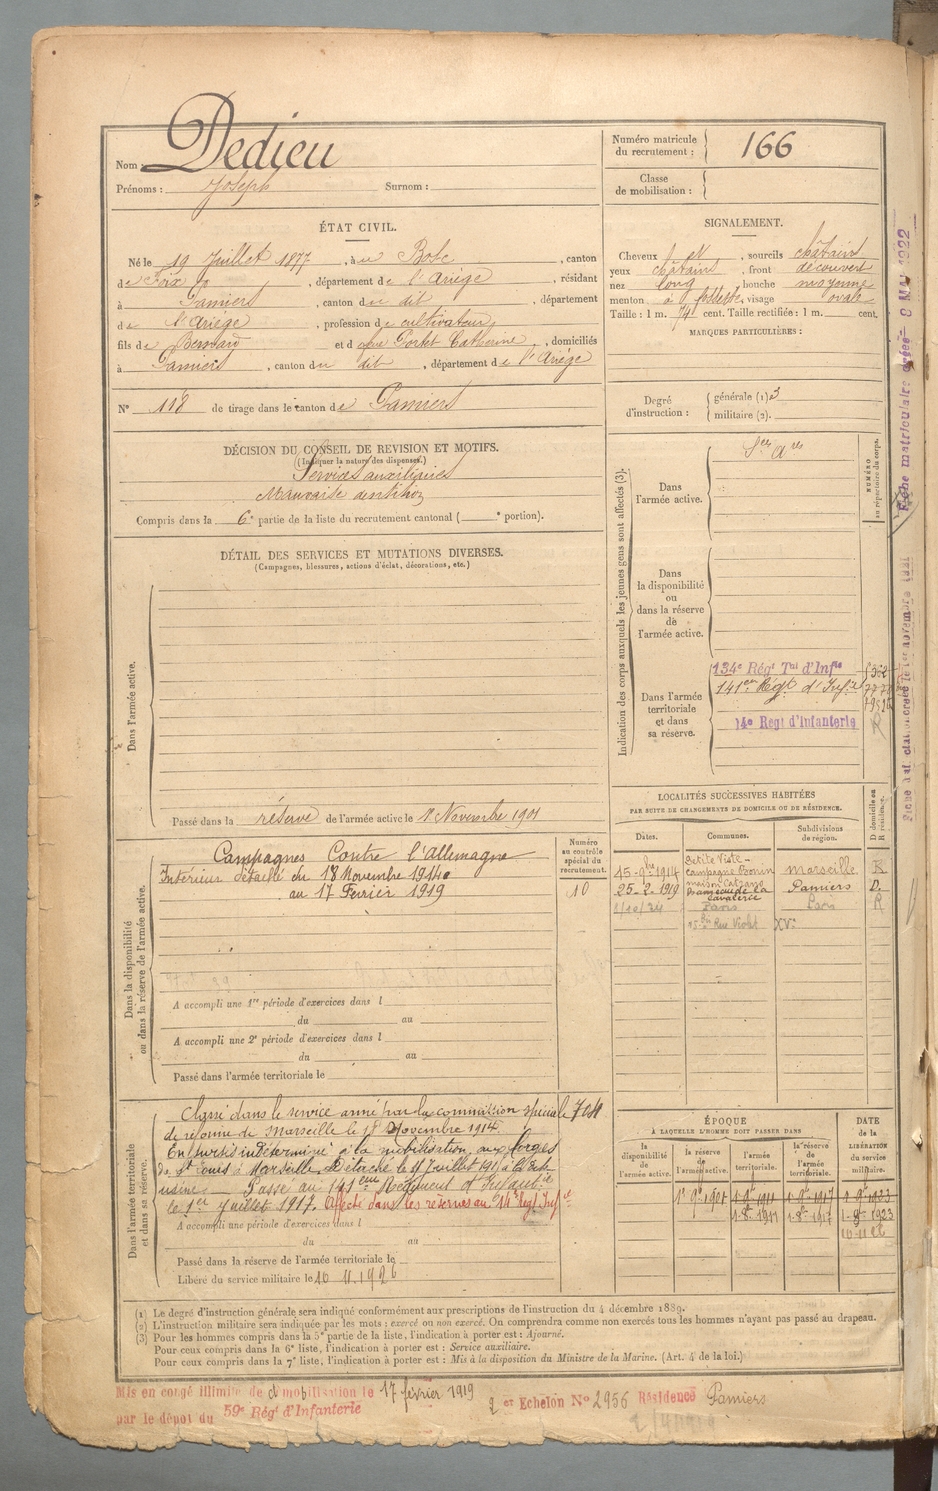 Nom : Dedieu
Prénoms : Joseph Surnom :
Numéro matricule du recrutement : 166
Classe de mobilisation :
ÉTAT CIVIL.
Né le 19 Juillet 1877, à u Bosc, canton
de Foix, département de l'Ariège, résidant
à Pamiers, canton du dit, département
de l'Ariège, profession de cultivateur,
fils de Bernard et d Portet Catherine, domiciliés
à Pamiers, canton du dit, département de l'Ariège
N° 118 de tirage dans le canton de Pamiers
SIGNALEMENT.
Cheveux, sourcils châtains
yeux châtains, front découvert
nez long, bouche moyenne
menton à fossette, visage ovale
Taille : 1 m. 74 cent. Taille rectifiée : 1 m. cent.
MARQUES PARTICULIÈRES :
Degré d'instruction : générale (1) 3
militaire (2).
DÉCISION DU CONSEIL DE REVISION ET MOTIFS.
(Indiquer la nature des dispenses.)
Services auxiliaires
Mauvaise dentition
Compris dans la 6e partie de la liste du recrutement cantonal ( e portion).
DÉTAIL DES SERVICES ET MUTATIONS DIVERSES.
(Campagnes, blessures, actions d'éclat, décorations, etc.)
Dans l'armée active.
Passé dans la réserve de l'armée active le 1 Novembre 1901
Indication des corps auxquels les jeunes gens sont affectés (3).
NUMÉRO au répertoire du corps.
Dans l'armée active.
Dans la disponibilité ou dans la réserve de l'armée active.
Dans l'armée territoriale et dans sa réserve.
134e Régt Tal d'Infie
141ème Régt d'Infie
14e Regt d'Infanterie
LOCALITÉS SUCCESSIVES HABITÉES
PAR SUITE DE CHANGEMENTS DE DOMICILE OU DE RÉSIDENCE.
D domicile ou R résidence.
Dates. Communes. Subdivisions de région.
15-9bre 1914 Petite Viste - campagne Marseille R
25-2-1919 caserne de la cavalerie Pamiers D.
1/10/34 Paris R
Rue Violet XVe
Dans la disponibilité ou dans la réserve de l'armée active.
Numéro au contrôle spécial du recrutement.
Campagnes Contre l'Allemagne
Intérieur détaché du 18 Novembre 1914
au 17 Fevrier 1919
A accompli une 1re période d'exercices dans l
du au
A accompli une 2e période d'exercices dans l
du au
Passé dans l'armée territoriale le
Dans l'armée territoriale et dans sa réserve.
Classé dans le service armé par la commission spéciale
de réforme de Marseille le 18 Novembre 1914.
En sursis indéterminé à la mobilisation, aux forges
de St Louis à Marseille. Détaché le
usine Passé au 141ème Régiment d'Infanterie
le 1er Juillet 1917. Affecté dans les réserves au 14e Régt Infie
A accompli une période d'exercices dans l
du au
Passé dans la réserve de l'armée territoriale le
Libéré du service militaire le 10.11.1926
ÉPOQUE
À LAQUELLE L'HOMME DOIT PASSER DANS
la disponibilité de l'armée active. la réserve de l'armée active. l'armée territoriale. la réserve de l'armée territoriale.
DATE de la LIBÉRATION du service militaire.
1er 9bre 1901 1-9bre 1911 1-9bre 1917 1-9bre 1923
1-8-1911 1-8-1917 1-8-1923
(1) Le degré d'instruction générale sera indiqué conformément aux prescriptions de l'instruction du 4 décembre 1889.
(2) L'instruction militaire sera indiquée par les mots : exercé ou non exercé. On comprendra comme non exercés tous les hommes n'ayant pas passé au drapeau.
(3) Pour les hommes compris dans la 5e partie de la liste, l'indication à porter est : Ajourné.
Pour ceux compris dans la 6e liste, l'indication à porter est : Service auxiliaire.
Pour ceux compris dans la 7e liste, l'indication à porter est : Mis à la disposition du Ministre de la Marine. (Art. 4 de la loi.)
Mis en congé illimité de démobilisation le 17 février 1919
par le dépot du 59e Régt d'Infanterie
2 er Echelon N° 2956 Résidence Pamiers